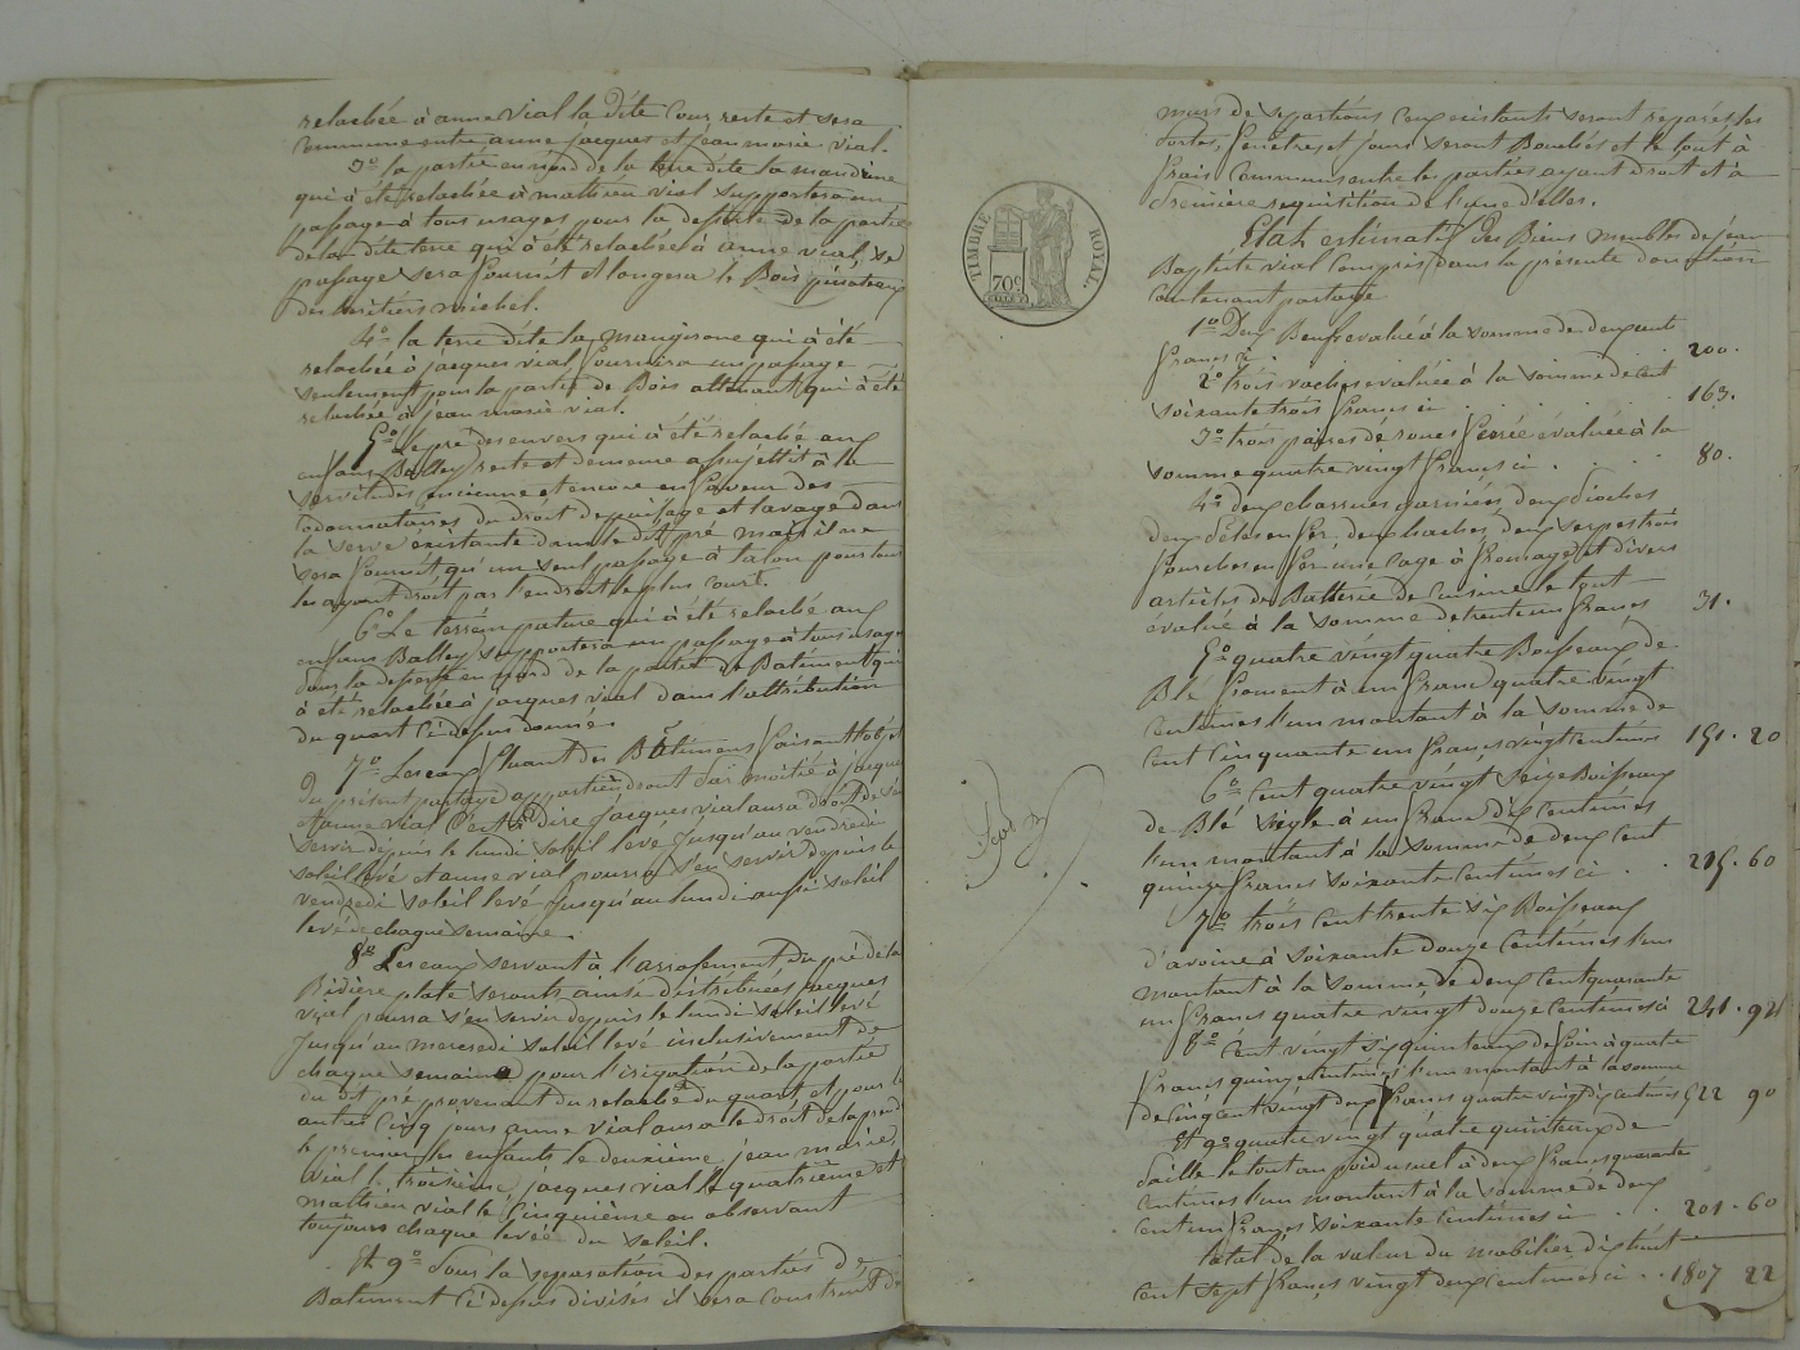 relachée à anne Vial la dite Cour reste et sera
Commune entre anne jacques et jean marie Vial.
3º la partie en nord de la terre dite la mandrine
qui à été relachée à mathieu vial supportera un
passage à tous usages pour la desserte de la partie
de la dite terre qui à été relachée à anne vial, se
passage sera fournit et longera le Bois pinateaux
des héritiers michel.
4º la terre dite la maugirone qui à été
relachée à jacques vial fournira un passage
seulement pour la partie de Bois attenant qui à été
relachée à jean marie vial.
5º Le pré des envers qui à été relaché aux
enfans Balley reste et demeure assujettit à la
servitudes encienne et encore en faveur des
Codonnataires du droit de puisage et lavage dans
la serve existante dans le dit pré mais il ne
sera fournit qu'un seul passage à talon pour tous
les ayant droit par l'endroit le plus court.
6º Le terrein pature qui à été relaché aux
enfans Balley supportera un passage à tous usage
pour la desserte en nord de la partie de Batiment qui
à été relachée à jacques vial dans l'attribution
du quart Ci dessus donné.
7º Les eaux fluant des Bâtimens faisant l'objet
du présent partage appartiendront par moitié à jacques
et anne vial C'est à Dire jacques vial aura droit de s'en
servir dépuis le lundi soleil levé jusqu'au vendredi
soleil levé et anne vial pourra s'en servir depuis le
vendredi soleil levé jusqu'au lundi aussi soleil
levé de chaque semaine.
8º Les eaux servant à l'arrosement du pré de la
Ridière plate seronts ainsi distribuées jacques
vial pourra s'en servir depuis le lundi soleil levé
jusqu'au mercredi soleil levé inclusivement de
chaque semaine pour l'irigation de la partie
du dit pré provenant du relaché du quart, et pour les
autres Cinq jours anne vial aura le droit de la prendre
le premier les enfants le deuxième jean marie
vial le troisième, jacques vial le quatrième et
mathieu vial le Cinquième en observant
toujours chaque levée du soleil.
Et 9º Pour la separation des partiés de
Batiment Ci dessus divisés il sera construit des
murs de separtions Ceux existants seront reparés, les
Portes, fenêtres et jours seront Bouchés et le tout à
frais Communs entre les parties ayant droit et à
Première requisition de l'une d'elles.
TIMBRE ROYAL.
70c
Etat estimatif des Biens meubles de jean
Baptiste vial Compris dans la présente donation
Contenant partage
1º Deux Beufs evalué à la somme de deux cents
francs ci . 200.
2º trois vaches evaluée à la somme de cent
soixante trois francs ci . . . . . 163.
3º trois paires de roues ferrée évaluée à la
somme quatre vingt francs ci . . . . 80.
4º deux charrues garnies, deux Pioches
deux Pêles en fer deux haches, deux serpes trois
fourches en fer une Cage à fromage, et divers
articles de Batterie de Cuisine le tout
évalué à la somme de trente un francs 31.
5º quatre vingt quatre Boisseaux de
Blé froment à un franc quatre vingt
Centimes l'un montant à la somme de
Cent Cinquante un francs vingt Centimes 151. 20
6º Cent quatre vingt seize Boisseaux
de Blé seigle à un franc dix Centimes
l'un montant à la somme de deux Cent
quinze francs soixante Centimes ci . . 215. 60
7º trois Cent trente six Boisseaux
d'avoine à soixante douze Centimes l'un
montant à la somme de deux Cent quarante
un francs quatre vingt douze Centimes ci 241. 92
8º Cent vingt six quinteaux de foin à quatre
francs quinze Centimes l'un montant à la somme
de Cinq Cent vingt deux francs quatre vingt dix Centimes 522 90
Et 9º quatre vingt quatre quinteaux de
Paille le tout au poid usuel à deux francs quarante
Centimes l'un montant à la somme de deux
Cent un francs soixante Centimes ci . . 201. 60
total de la valeur du mobilier dix huit
Cent sept francs vingt deux Centimes ci . . 1807 22